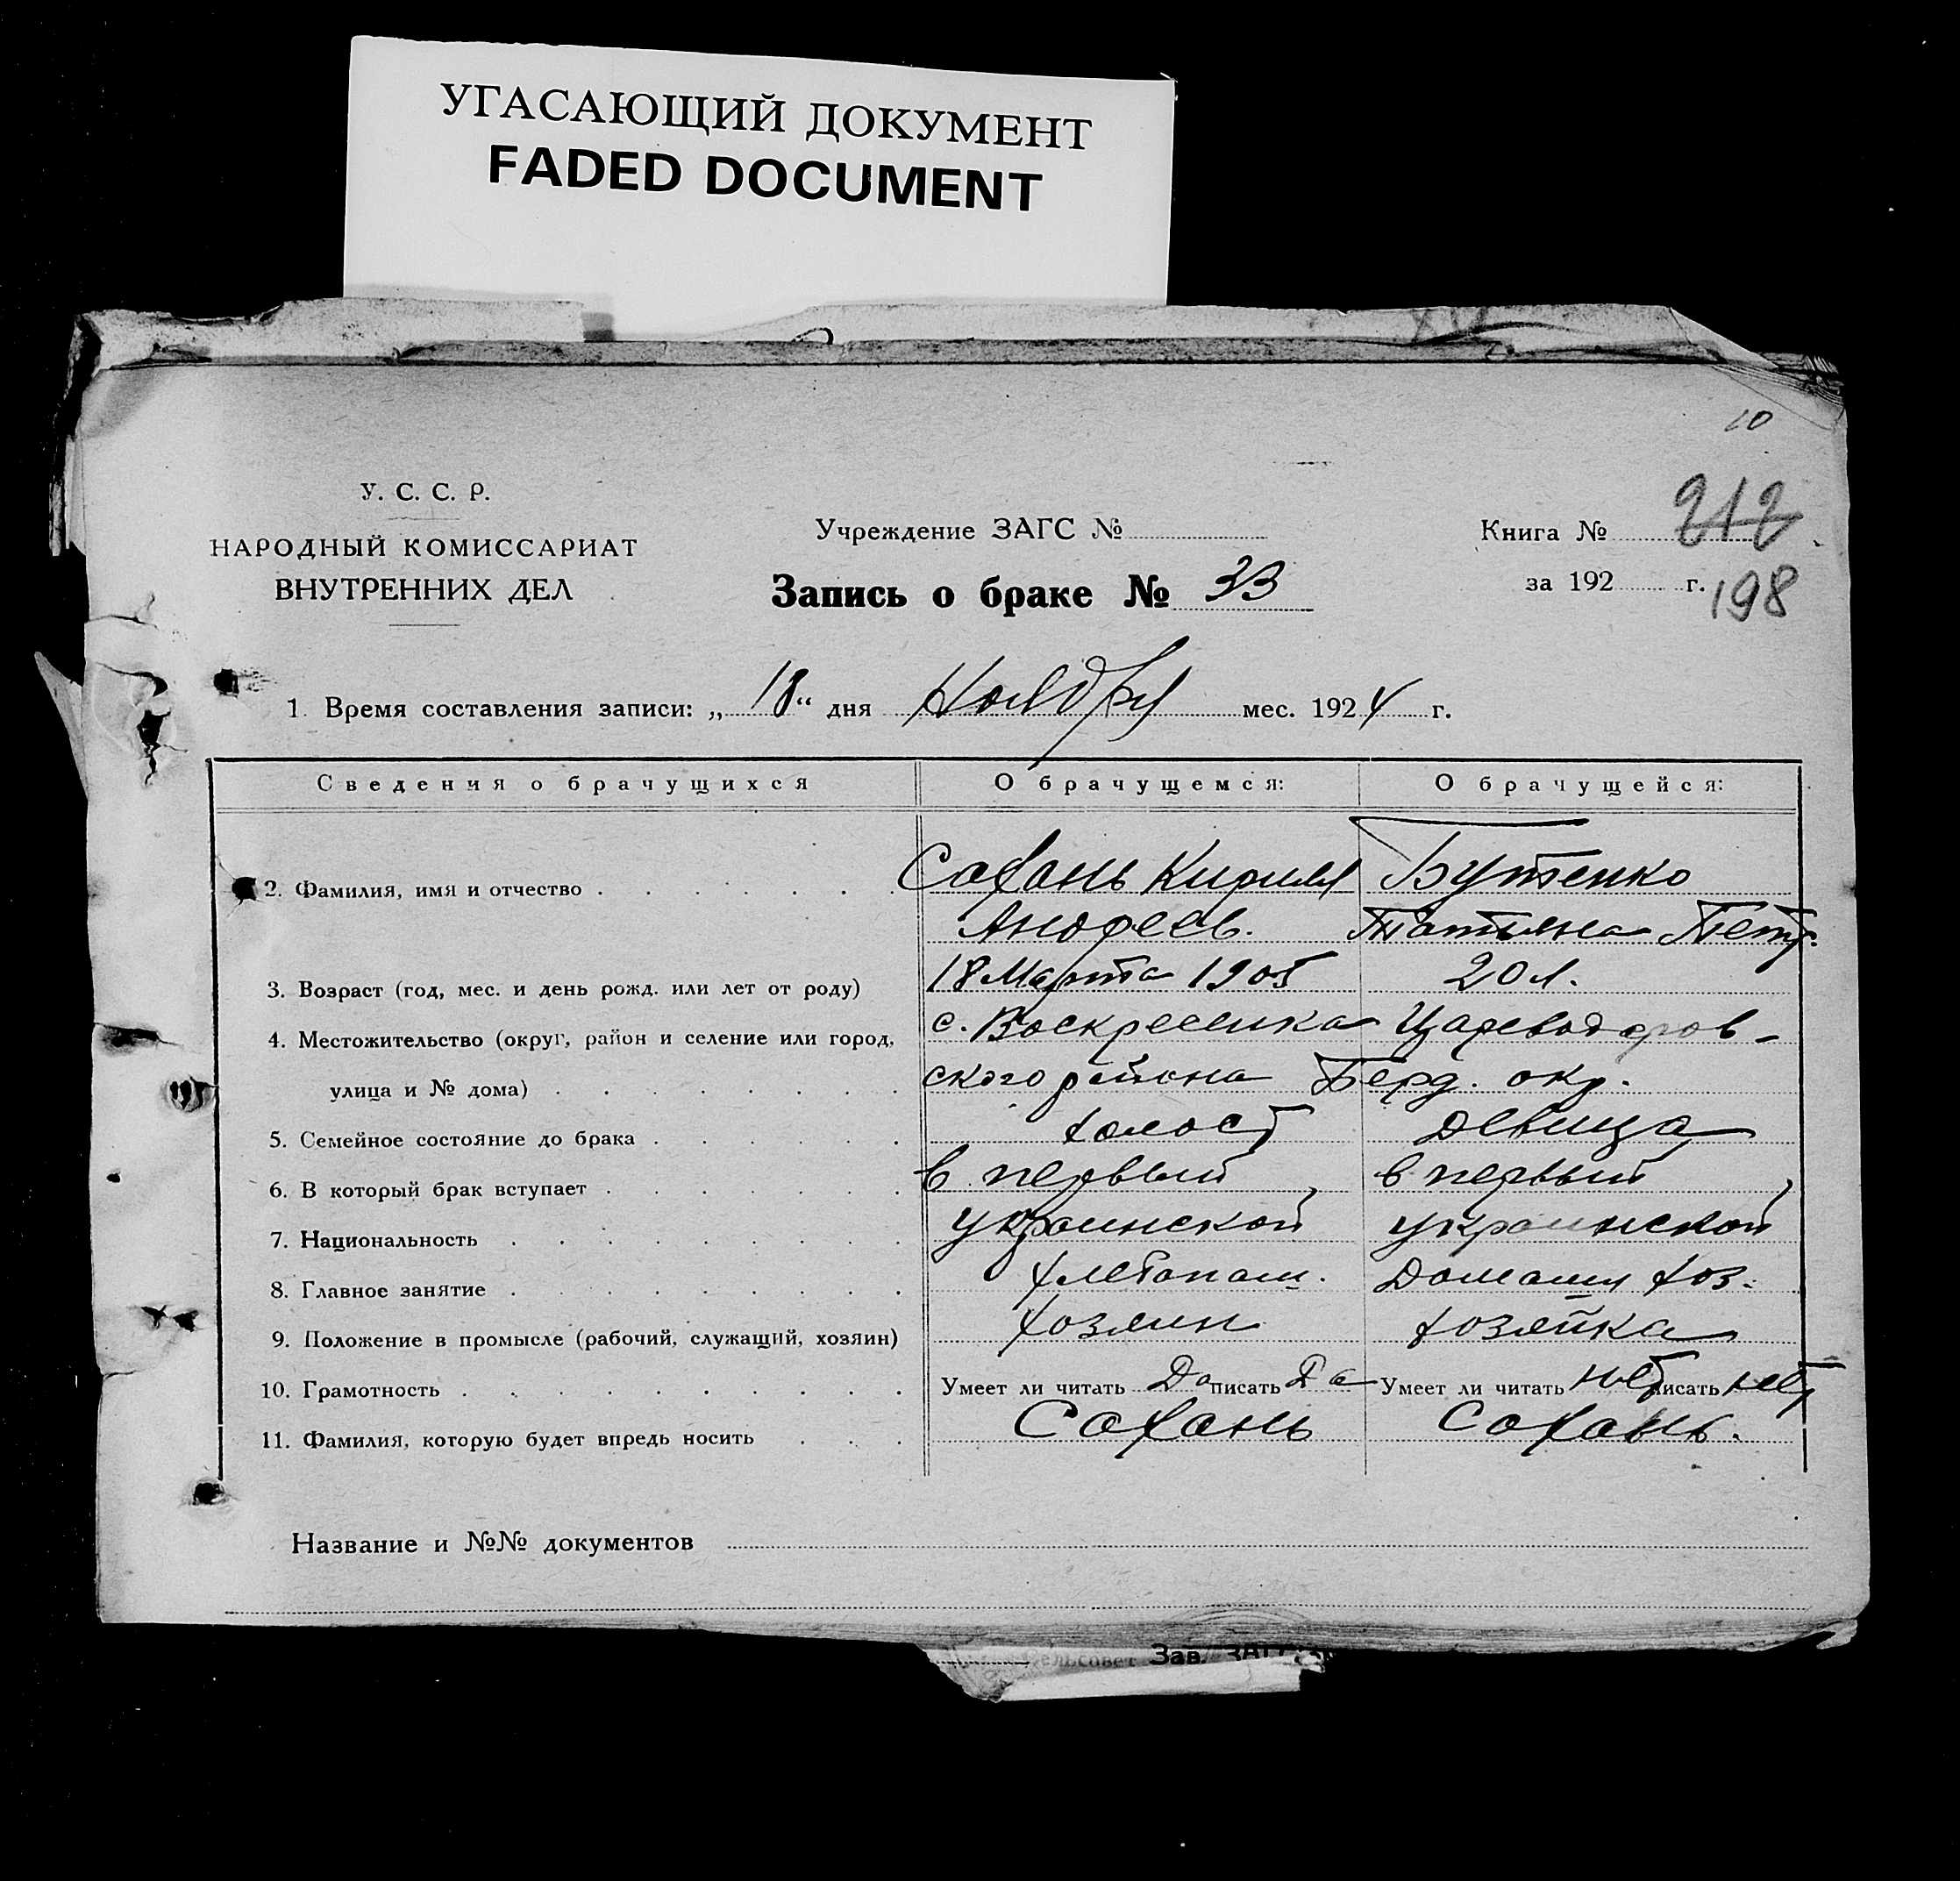 УГАСАЮЩИЙ ДОКУМЕНТ
FADED DOCUMENT
10
У. С. С. Р.
НАРОДНЫЙ КОМИССАРИАТ
ВНУТРЕННИХ ДЕЛ
Учреждение ЗАГС №
Запись о браке № 33
Книга № 212
за 192 г. 198
1. Время составления записи: „18“ дня Ноября мес. 1924 г.
Сведения о брачущихся О брачущемся: О брачущейся:
2. Фамилия, имя и отчество Сахань Кирилл Бутенко
Андреев. Татьяна Петр.
3. Возраст (год, мес. и день рожд. или лет от роду) 18 Марта 1905 20 л.
4. Местожительство (округ, район и селение или город, с. Воскресенка Цареводаров-
улица и № дома) ского района Берд. окр.
5. Семейное состояние до брака холост девица
6. В который брак вступает в первый, в первый,
7. Национальность украинской украинской
8. Главное занятие хлебопаш. Домашн хоз.
9. Положение в промысле (рабочий, служащий, хозяин) хозяин хозяйка
10. Грамотность Умеет ли читать Да писать Да Умеет ли читать нет писать нет
11. Фамилия, которую будет впредь носить Сахань Сахань.
Название и №№ документов
Сельсовет Зав.